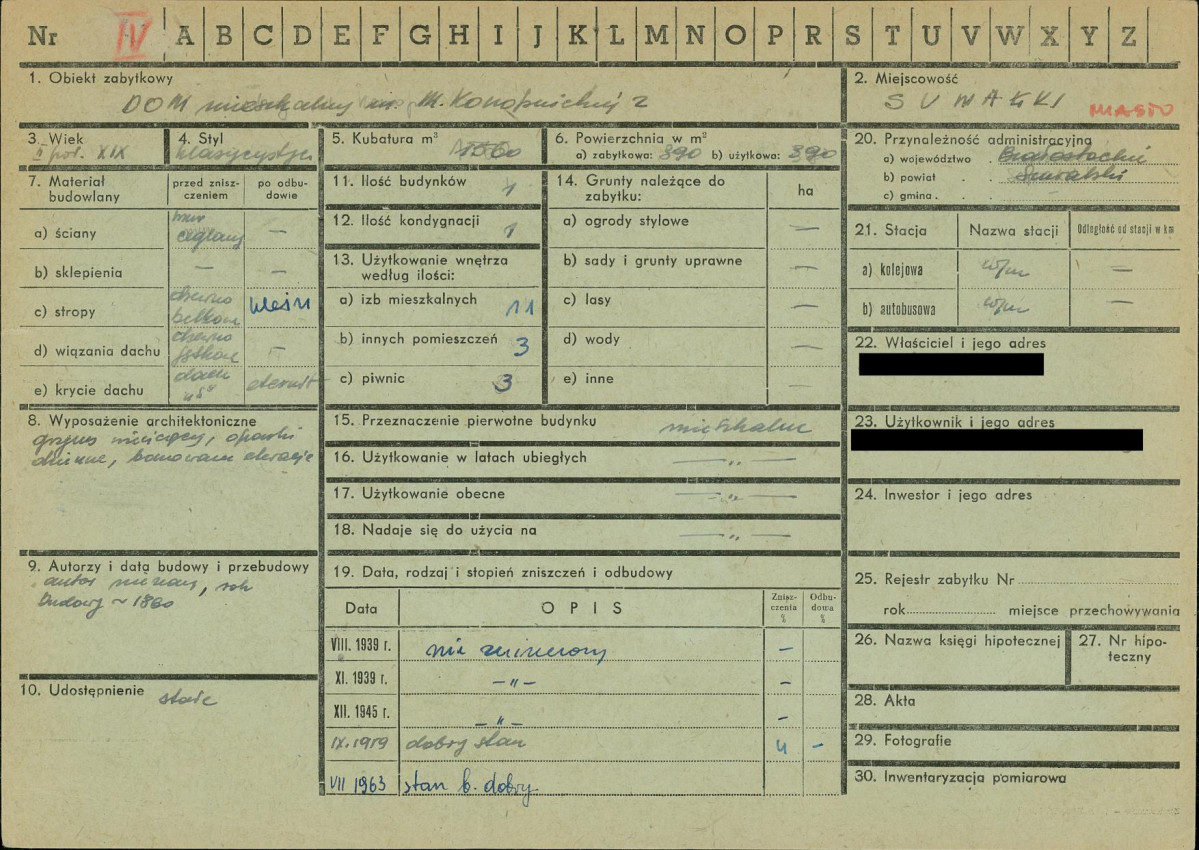 Nr IV A B C D E F G H I J K L M N O P R S T U V W X Y Z
1. Obiekt zabytkowy
DOM mieszkalny M. Konopnickiej 2
2. Miejscowość
SUWAŁKI
MIASTO
3. Wiek
II poł. XIX
4. Styl
klasycystycz
5. Kubatura m³
1560
6. Powierzchnia w m²
a) zabytkowa: 390 b) użytkowa: 390
20. Przynależność administracyjna
a) województwo . Białostockie
b) powiat . . Suwalski
c) gmina . . –
7. Materiał budowlany
przed znisz-
czeniem
po odbu-
dowie
a) ściany mur ceglany —
b) sklepienia — —
c) stropy drewno belkowe
d) wiązania dachu drewno —
e) krycie dachu eternit
11. Ilość budynków 1
12. Ilość kondygnacji 1
13. Użytkowanie wnętrza
według ilości:
a) izb mieszkalnych 11
b) innych pomieszczeń 3
c) piwnic 3
14. Grunty należące do
zabytku:
ha
a) ogrody stylowe —
b) sady i grunty uprawne —
c) lasy —
d) wody —
e) inne —
21. Stacja Nazwa stacji Odległość od stacji w km
a) kolejowa —
b) autobusowa —
22. Właściciel i jego adres
8. Wyposażenie architektoniczne
gzyms wieńczący, opaski
okienne,
15. Przeznaczenie pierwotne budynku mieszkalne
16. Użytkowanie w latach ubiegłych — „ —
17. Użytkowanie obecne — „ —
18. Nadaje się do użycia na — „ —
23. Użytkownik i jego adres
24. Inwestor i jego adres
9. Autorzy i data budowy i przebudowy
autor nieznany, rok
budowy ~ 1860
10. Udostępnienie stałe
19. Data, rodzaj i stopień zniszczeń i odbudowy
Data OPIS
Znisz-
czenia
%
Odbu-
dowa
%
VIII. 1939 r. nie zniszczony –
XI. 1939 r. – „ – –
XII. 1945 r. – „ – –
IX. 1959 dobry stan 4 –
VII 1963 stan b. dobry
25. Rejestr zabytku Nr
rok miejsce przechowywania
26. Nazwa księgi hipotecznej
27. Nr hipo-
teczny
28. Akta
29. Fotografie
30. Inwentaryzacja pomiarowa